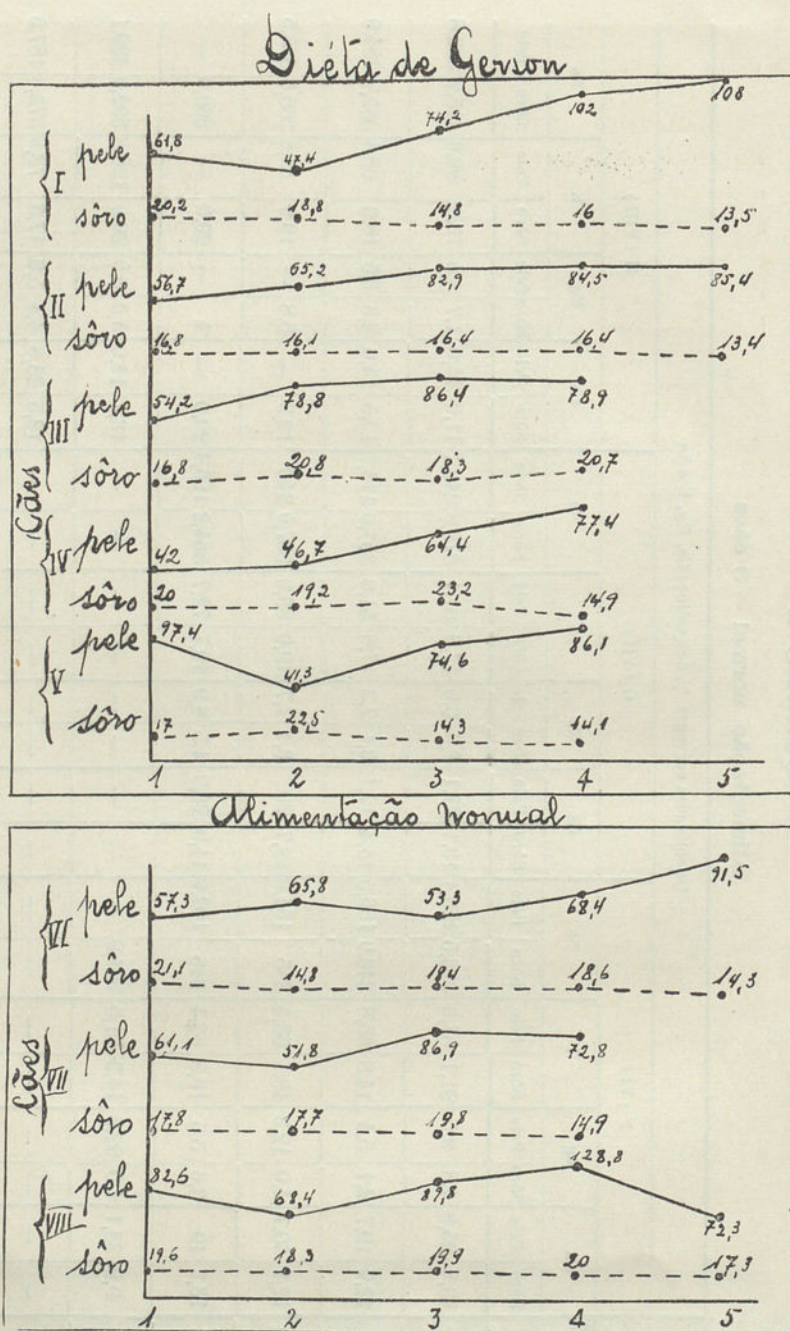 Diéta de Gerson
Cães
I
pele 61,8 47,4 74,2 102 108
sôro 20,2 18,8 14,8 16 13,5
II
pele 56,7 65,2 82,9 84,5 85,4
sôro 16,8 16,1 16,4 16,4 13,4
III
pele 54,2 78,8 86,4 78,9
sôro 16,8 20,8 18,3 20,7
IV
pele 42 46,7 64,4 77,4
sôro 20 19,2 23,2 14,9
V
pele 97,4 41,3 74,6 86,1
sôro 17 22,5 14,3 14,1
1 2 3 4 5
Alimentação normal
Cães
VI
pele 57,3 65,8 53,3 68,4 91,5
sôro 21,1 14,8 18,4 18,6 14,3
VII
pele 61,1 51,8 86,9 72,8
sôro 17,8 17,7 19,8 14,9
VIII
pele 82,6 68,4 89,8 128,8 72,3
sôro 19,6 18,3 19,9 20 17,3
1 2 3 4 5